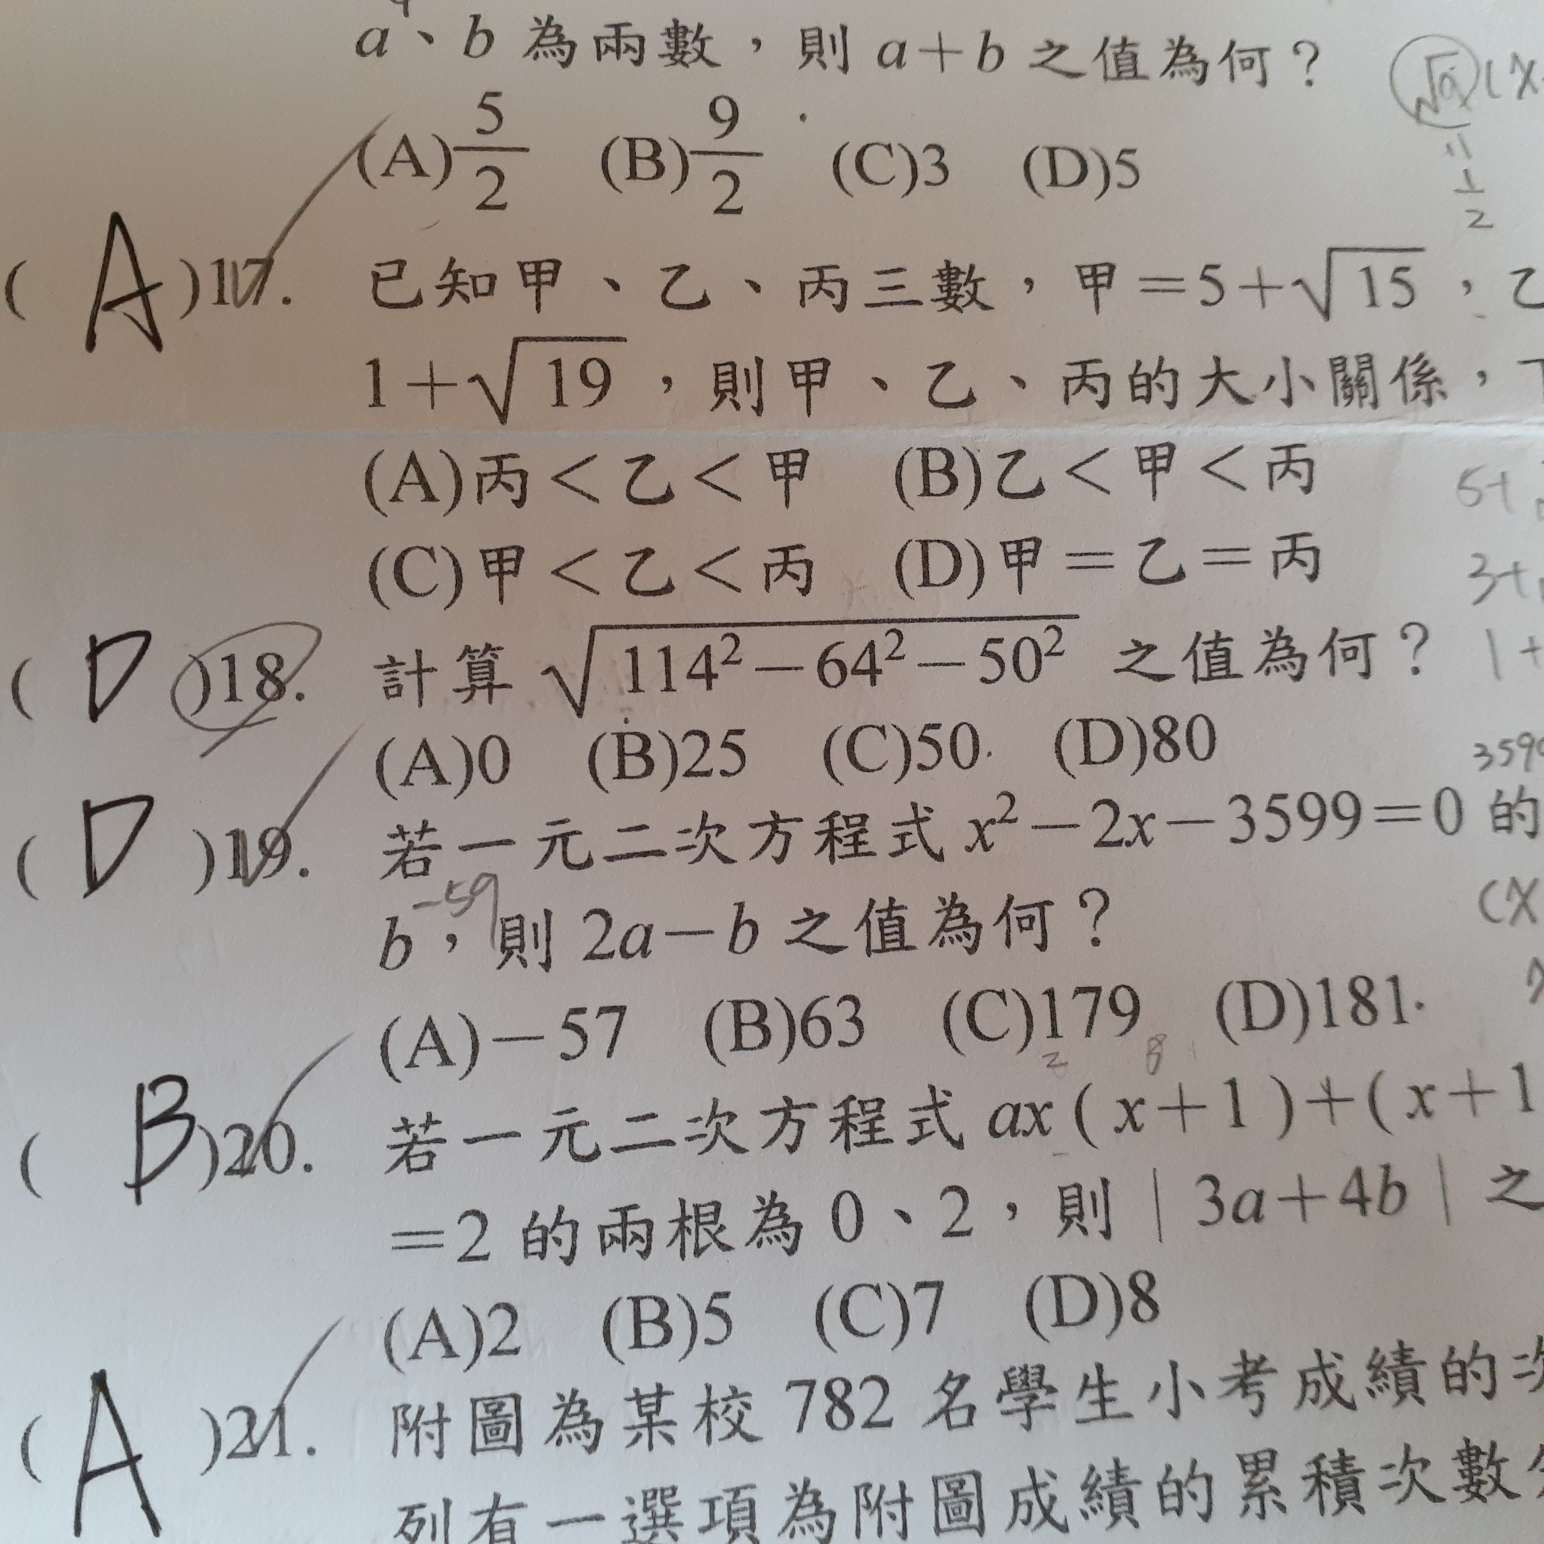 a、b 為兩數，則 a+b 之值為何？
(A)5/2 (B)9/2 (C)3 (D)5
( A )17. 已知甲、乙、丙三數，甲=5+√15，乙
1+√19，則甲、乙、丙的大小關係，
(A)丙<乙<甲 (B)乙<甲<丙
(C)甲<乙<丙 (D)甲=乙=丙
( D )18. 計算 √(114²-64²-50²) 之值為何？
(A)0 (B)25 (C)50 (D)80
( D )19. 若一元二次方程式 x²-2x-3599=0 的
-59
b，則 2a-b 之值為何？
(A)-57 (B)63 (C)179 (D)181
( B )20. 若一元二次方程式 ax(x+1)+(x+1
=2 的兩根為 0、2，則 |3a+4b| 之
(A)2 (B)5 (C)7 (D)8
( A )21. 附圖為某校 782 名學生小考成績的次
列有一選項為附圖成績的累積次數分